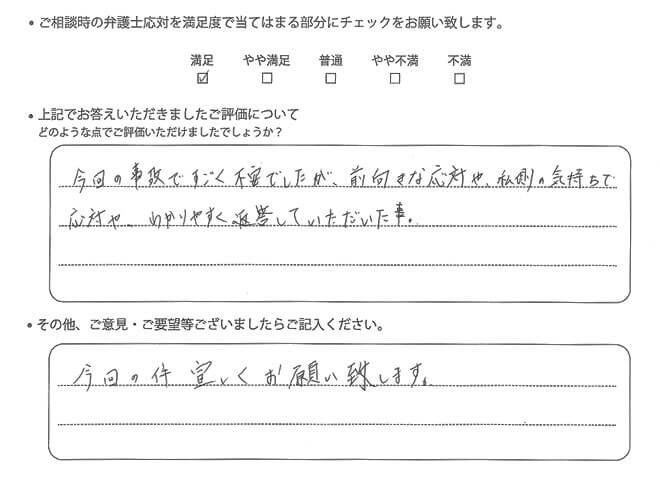 • ご相談時の弁護士応対を満足度で当てはまる部分にチェックをお願い致します。
満足 やや満足 普通 やや不満 不満
☑ ☐ ☐ ☐ ☐
• 上記でお答えいただきましたご評価について
どのような点でご評価いただけましたでしょうか？
今回の事故ですごく不安でしたが、前向きな応対や、私側の気持ちで
応対や、わかりやすく返答していただいた事。
• その他、ご意見・ご要望等ございましたらご記入ください。
今回の件 宜しくお願い致します。